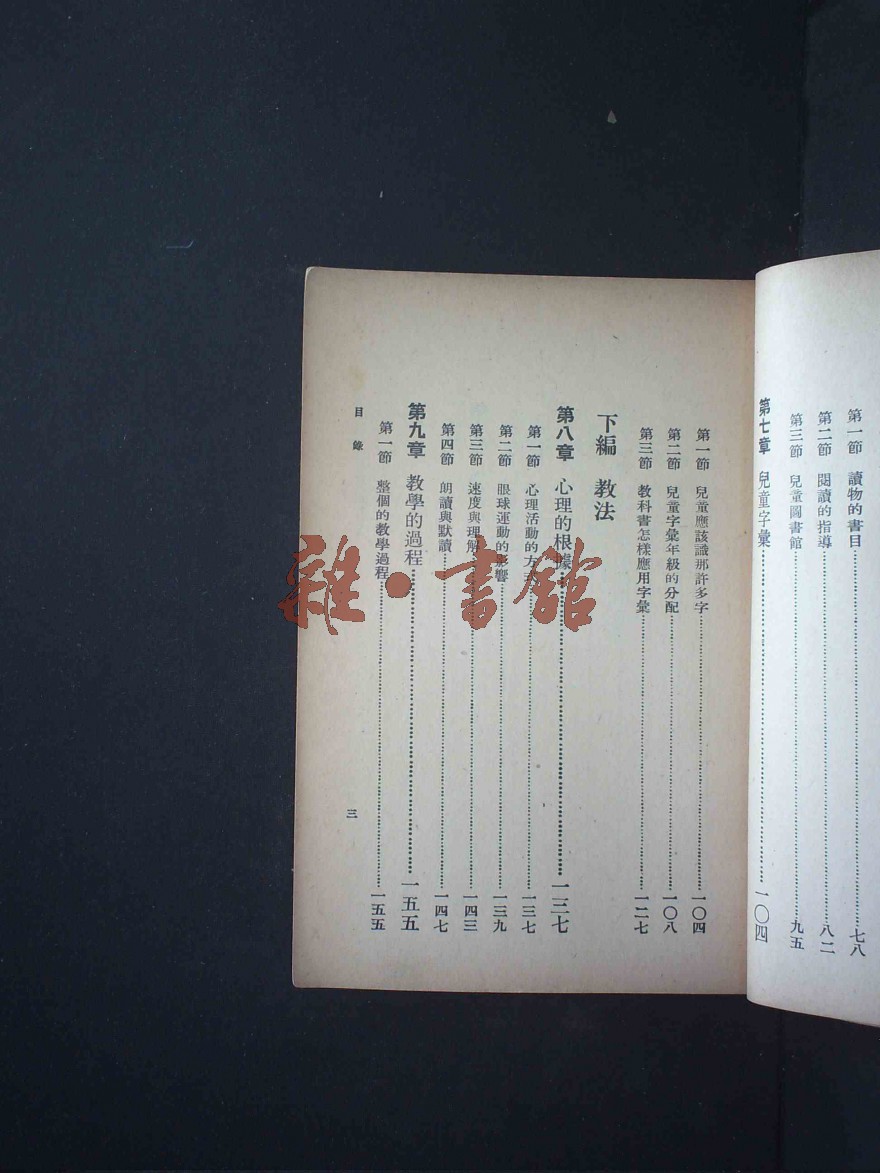 第一節　讀物的書目……七八
第二節　閱讀的指導……八二
第三節　兒童圖書館……九五
第七章　兒童字彙……一〇四
第一節　兒童應該識那許多字……一〇四
第二節　兒童字彙年級的分配……一〇八
第三節　教科書怎樣應用字彙……一二七
下編　教法
第八章　心理的根據……一三七
第一節　心理活動的方式……一三七
第二節　眼球運動的影響……一三九
第三節　速度與理解……一四三
第四節　朗讀與默讀……一四七
第九章　教學的過程……一五五
第一節　整個的教學過程……一五五
目錄
三
雜·書館